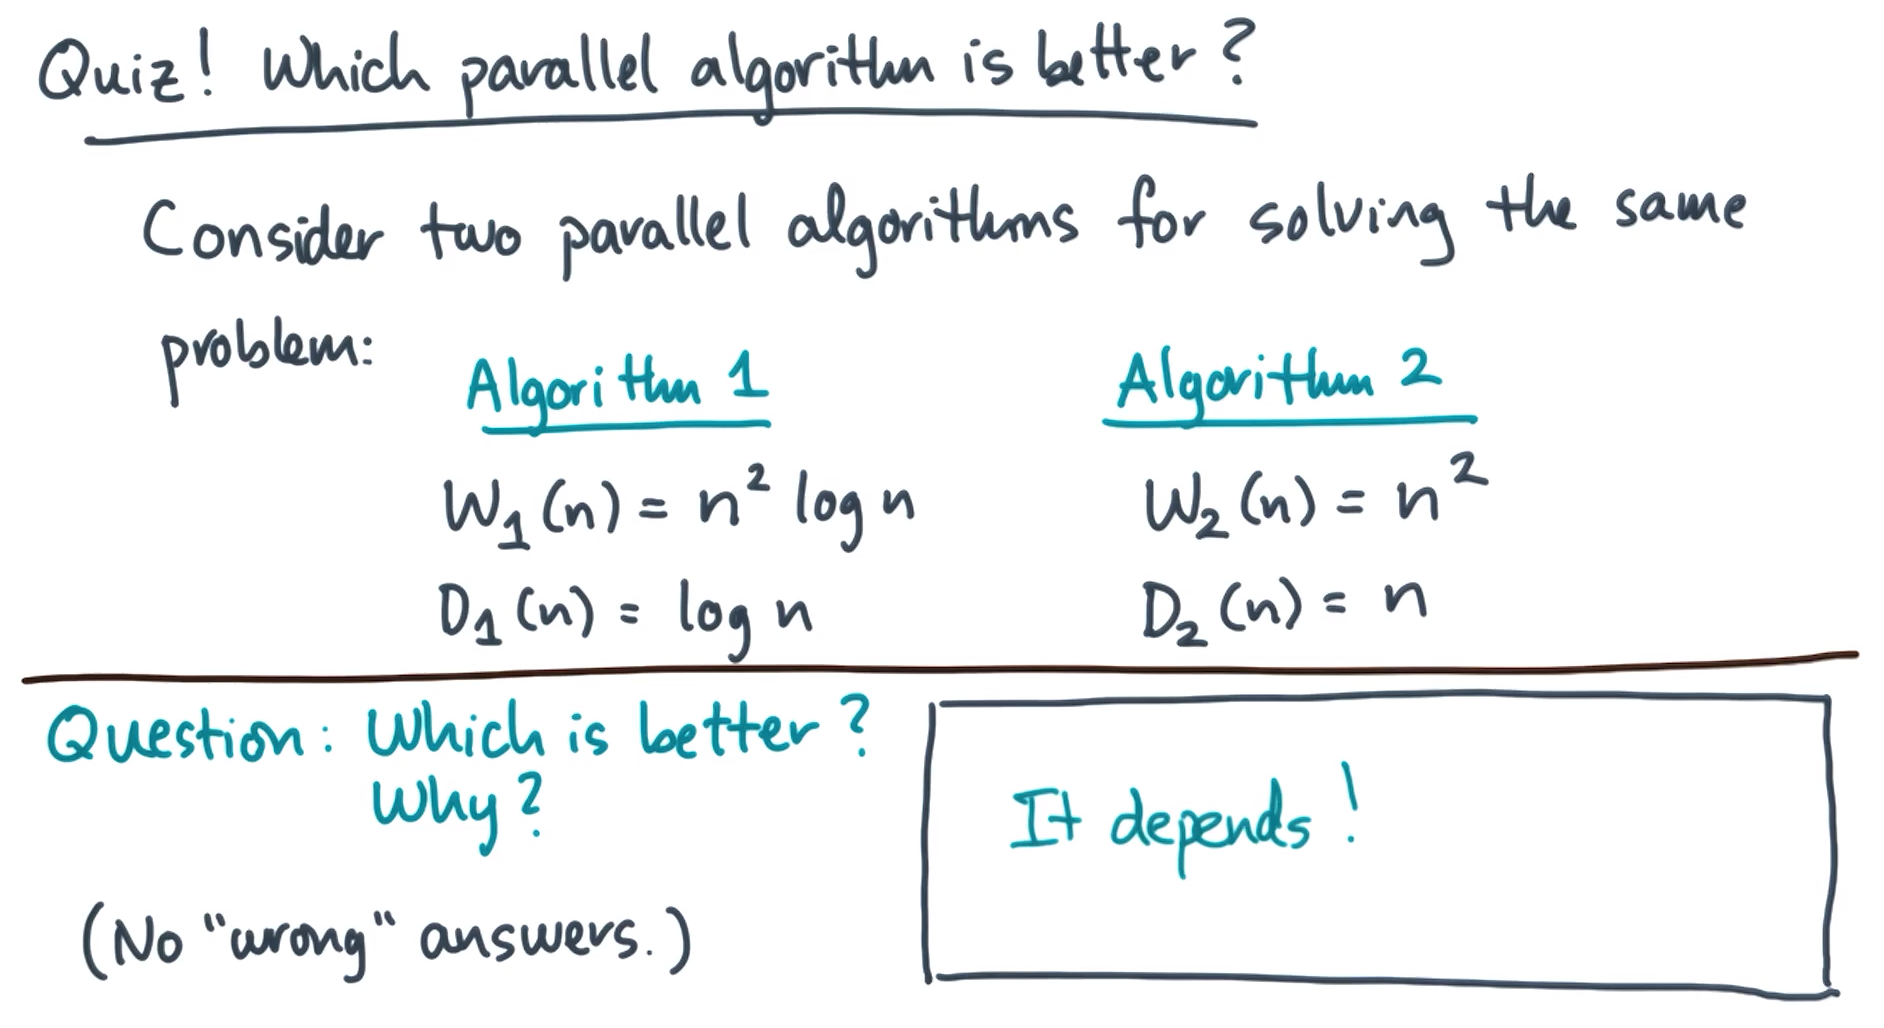 Quiz! Which parallel algorithm is better?
Consider two parallel algorithms for solving the same
problem:
Algorithm 1
W₁(n) = n² log n
D₁(n) = log n
Algorithm 2
W₂(n) = n²
D₂(n) = n
Question: Which is better?
Why?
(No "wrong" answers.)
It depends!